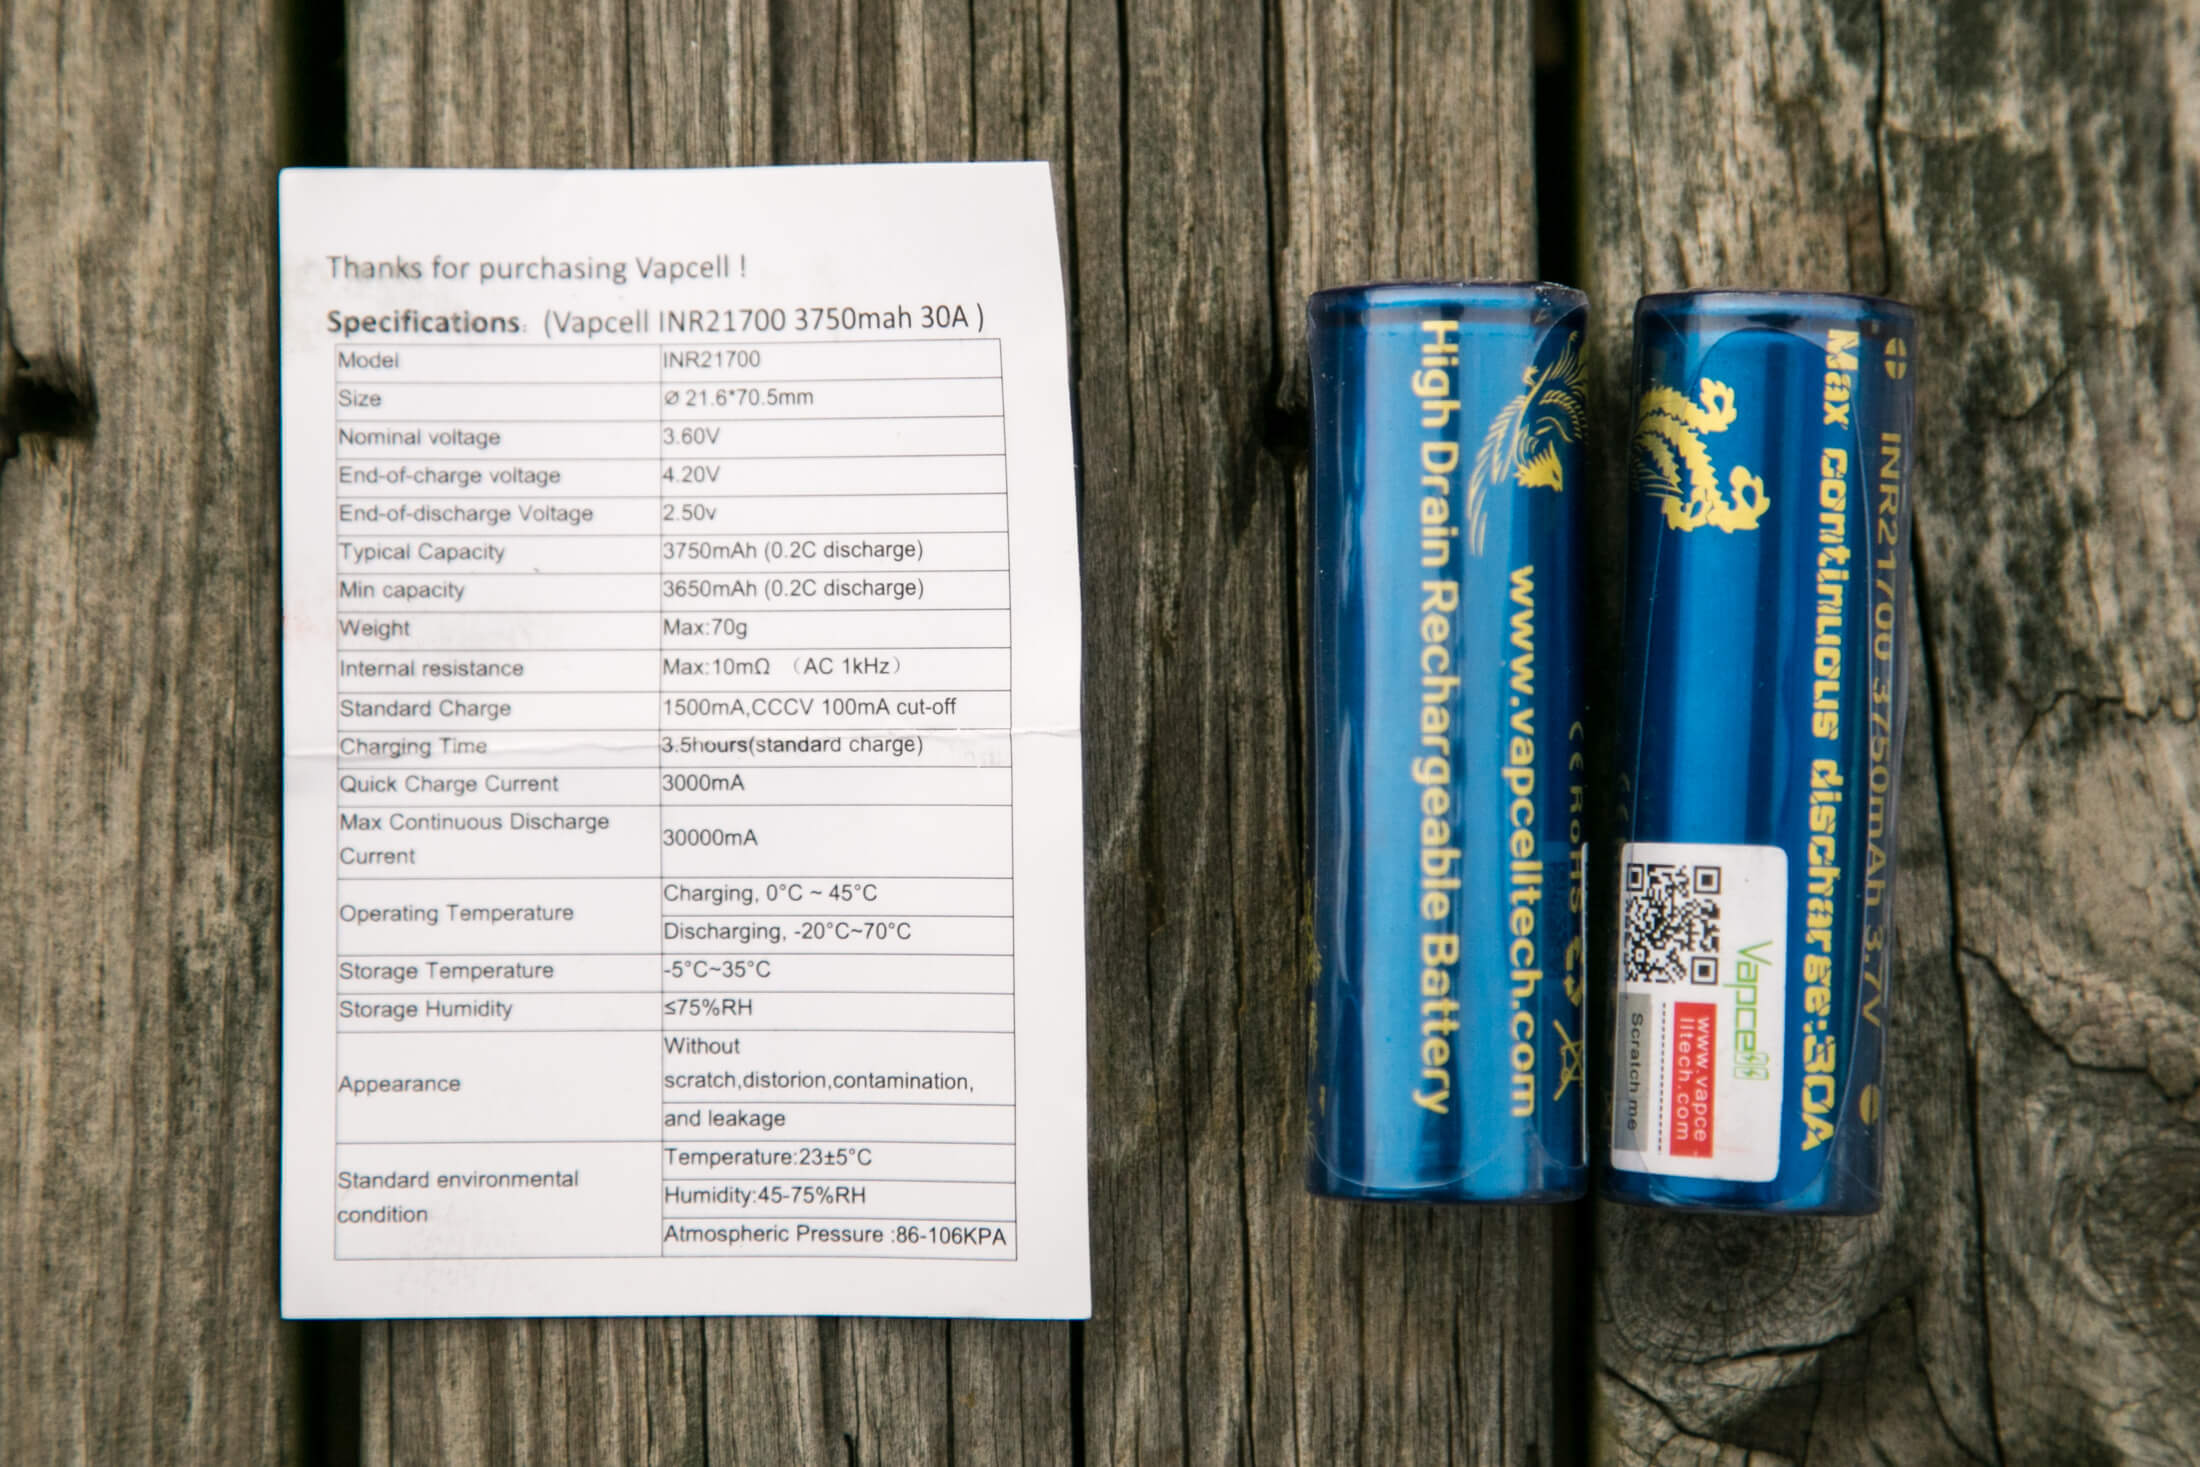 Thanks for purchasing Vapcell !
Specifications: (Vapcell INR21700 3750mah 30A )
Model INR21700
Size Ø 21.6*70.5mm
Nominal voltage 3.60V
End-of-charge voltage 4.20V
End-of-discharge Voltage 2.50v
Typical Capacity 3750mAh (0.2C discharge)
Min capacity 3650mAh (0.2C discharge)
Weight Max:70g
Internal resistance Max:10mΩ （AC 1kHz）
Standard Charge 1500mA,CCCV 100mA cut-off
Charging Time 3.5hours(standard charge)
Quick Charge Current 3000mA
Max Continuous Discharge
Current
30000mA
Operating Temperature
Charging, 0°C ~ 45°C
Discharging, -20°C~70°C
Storage Temperature -5°C~35°C
Storage Humidity ≤75%RH
Appearance
Without
scratch,distorion,contamination,
and leakage
Standard environmental
condition
Temperature:23±5°C
Humidity:45-75%RH
Atmospheric Pressure :86-106KPA
High Drain Rechargeable Battery
www.vapcelltech.com
CE RoHS
INR21700 3750mAh 3.7V
Max continuous discharge:30A
Vapcell
www.vapce
lltech.com
Scratch me